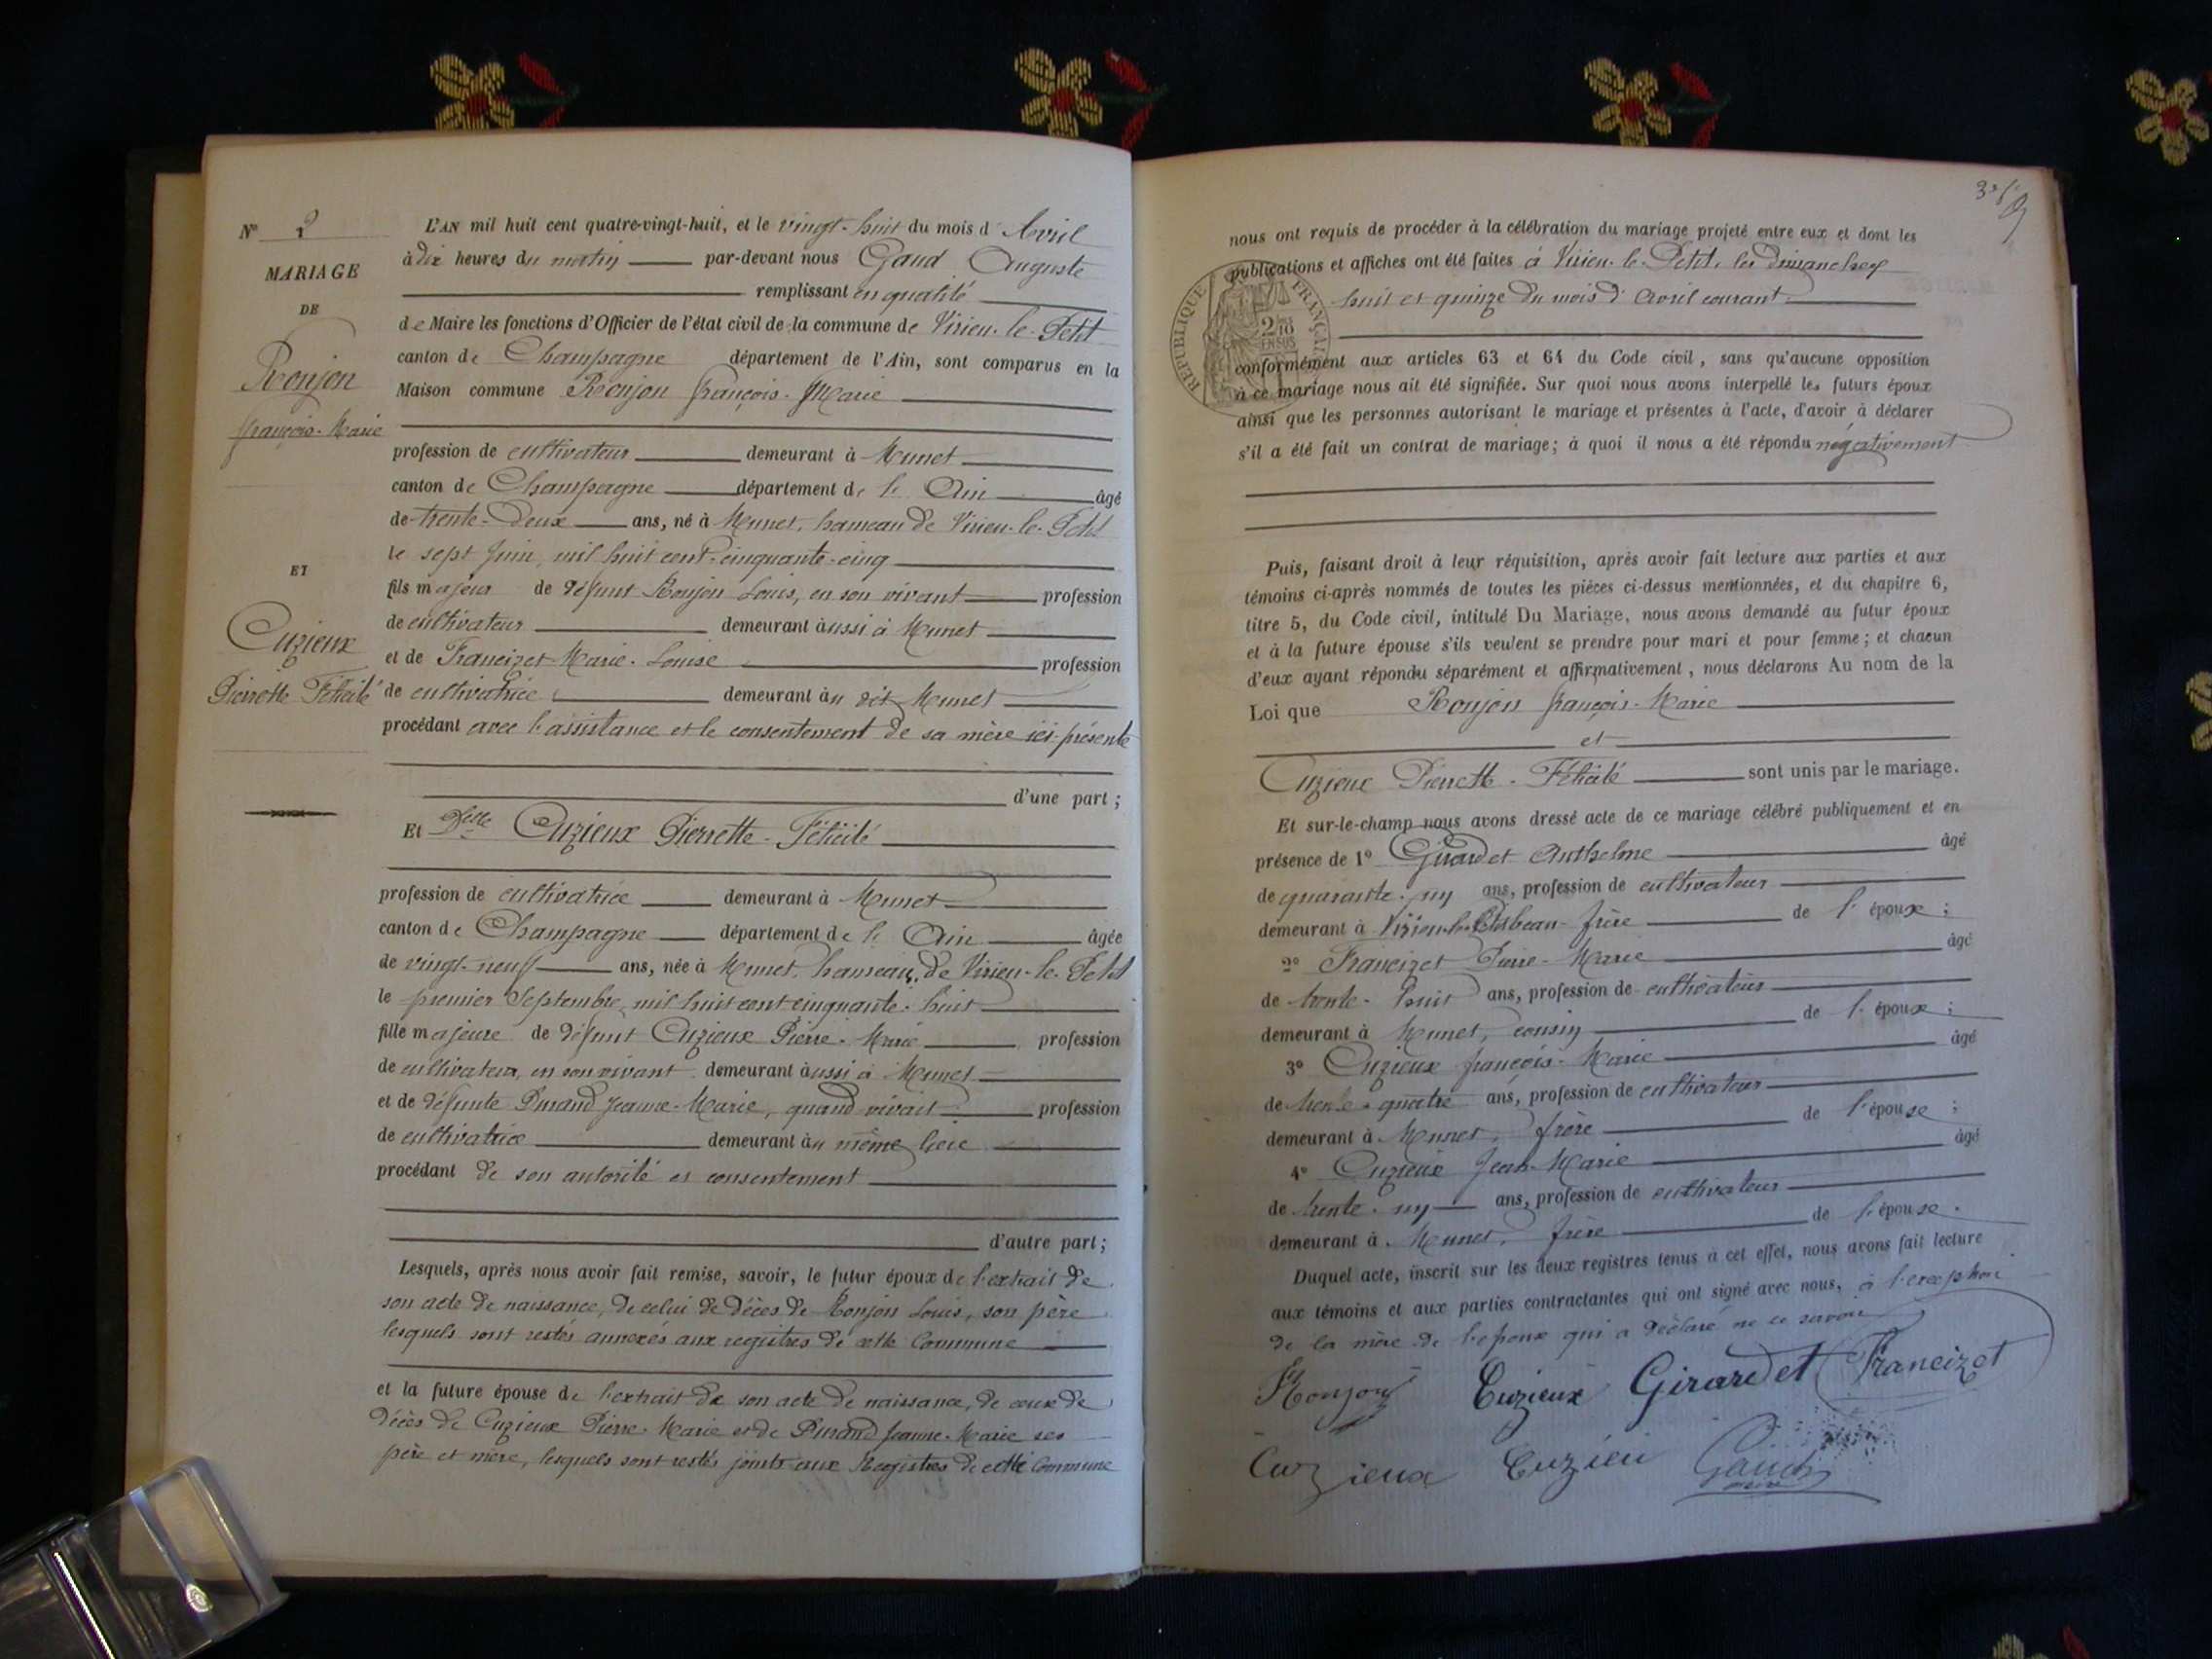 N° 2
MARIAGE
DE
Roujon
François-Marie
ET
Cuzieux
Pierrette Félicité
L'AN mil huit cent quatre-vingt-huit, et le vingt-huit du mois d'Avril
à dix heures du matin par-devant nous Gaud Auguste
remplissant en qualité
de Maire les fonctions d'Officier de l'état civil de la commune de Virieu-le-Petit
canton de Champagne département de l'Ain, sont comparus en la
Maison commune Roujon françois-Marie
profession de cultivateur demeurant à Munet
canton de Champagne département de l'Ain âgé
de trente-deux ans, né à Munet, hameau de Virieu-le-Petit
le sept Juin, mil huit cent cinquante-cinq
fils majeur de défunt Roujon Louis, en son vivant profession
de cultivateur demeurant aussi à Munet
et de Francizet Marie-Louise profession
de cultivatrice demeurant au dit Munet
procédant avec l'assistance et le consentement de sa mère ici présente
d'une part ;
Et Delle Cuzieux Pierrette-Félicité
profession de cultivatrice demeurant à Munet
canton de Champagne département de l'Ain âgée
de vingt-neuf ans, née à Munet, hameau de Virieu-le-Petit
le premier Septembre mil huit cent cinquante-huit
fille majeure de défunt Cuzieux Pierre-Marie profession
de cultivateur, en son vivant demeurant aussi à Munet
et de défunte Durand Jeanne-Marie, quand vivait profession
de cultivatrice demeurant au même lieu
procédant de son autorité et consentement
d'autre part ;
Lesquels, après nous avoir fait remise, savoir, le futur époux de l'extrait de
son acte de naissance, de celui de décès de Roujon Louis, son père
lesquels sont restés annexés aux registres de cette Commune
et la future épouse de l'extrait de son acte de naissance, de ceux de
décès de Cuzieux Pierre-Marie et de Durand Jeanne-Marie ses
père et mère, lesquels sont restés joints aux Registres de cette Commune
nous ont requis de procéder à la célébration du mariage projeté entre eux et dont les
publications et affiches ont été faites à Virieu-le-Petit, les Dimanches
huit et quinze du mois d'avril courant
RÉPUBLIQUE FRANÇAISE
2/10 EN SUS
conformément aux articles 63 et 64 du Code civil, sans qu'aucune opposition
à ce mariage nous ait été signifiée. Sur quoi nous avons interpellé les futurs époux
ainsi que les personnes autorisant le mariage et présentes à l'acte, d'avoir à déclarer
s'il a été fait un contrat de mariage ; à quoi il nous a été répondu négativement
Puis, faisant droit à leur réquisition, après avoir fait lecture aux parties et aux
témoins ci-après nommés de toutes les pièces ci-dessus mentionnées, et du chapitre 6,
titre 5, du Code civil, intitulé Du Mariage, nous avons demandé au futur époux
et à la future épouse s'ils veulent se prendre pour mari et pour femme ; et chacun
d'eux ayant répondu séparément et affirmativement, nous déclarons Au nom de la
Loi que Roujon françois-Marie
et
Cuzieux Pierrette-Félicité sont unis par le mariage.
Et sur-le-champ nous avons dressé acte de ce mariage célébré publiquement et en
présence de 1° Girardet Anthelme âgé
de quarante-un ans, profession de cultivateur
demeurant à Virieu-le-Petit beau-frère de l'époux ;
2° Francizet Pierre-Marie âgé
de trente-huit ans, profession de cultivateur
demeurant à Munet, cousin de l'époux ;
3° Cuzieux françois-Marie âgé
de trente-quatre ans, profession de cultivateur
demeurant à Munet, frère de l'épouse ;
4° Cuzieux Jean-Marie âgé
de trente-un ans, profession de cultivateur
demeurant à Munet, frère de l'épouse.
Duquel acte, inscrit sur les deux registres tenus à cet effet, nous avons fait lecture
aux témoins et aux parties contractantes qui ont signé avec nous, à l'exception
de la mère de l'époux qui a déclaré ne le savoir
Roujon Cuzieux Girardet Francizet
Cuzieux Cuzieu Gaud
maire